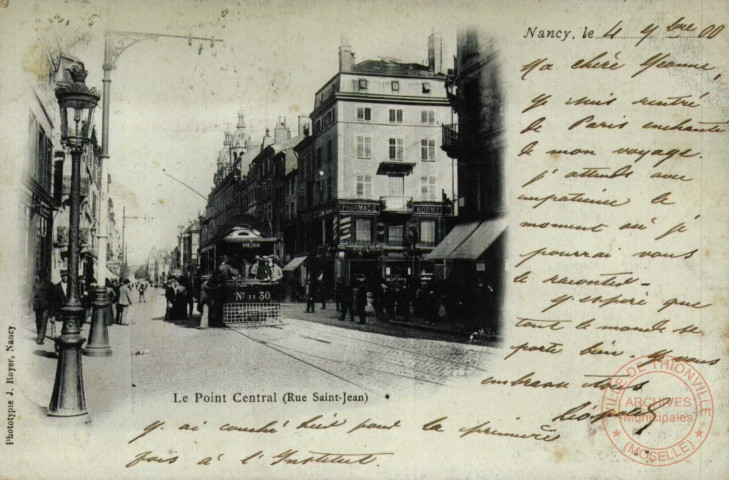 Nancy, le 4 9bre 00
Ma chère Jeanne,
Je suis rentré
de Paris enchanté
de mon voyage.
J'attends avec
impatience le
moment où je
pourrai vous
le raconter.
J'espère que
tout le monde se
porte bien. Je vous
embrasse tous
PHARMACIE NORMALE
Nº 11 50
Le Point Central (Rue Saint-Jean)
J'ai couché hier pour la première
fois à l'Institut.
Phototypie J. Royer, Nancy
VILLE DE THIONVILLE
ARCHIVES
Municipales
(MOSELLE)